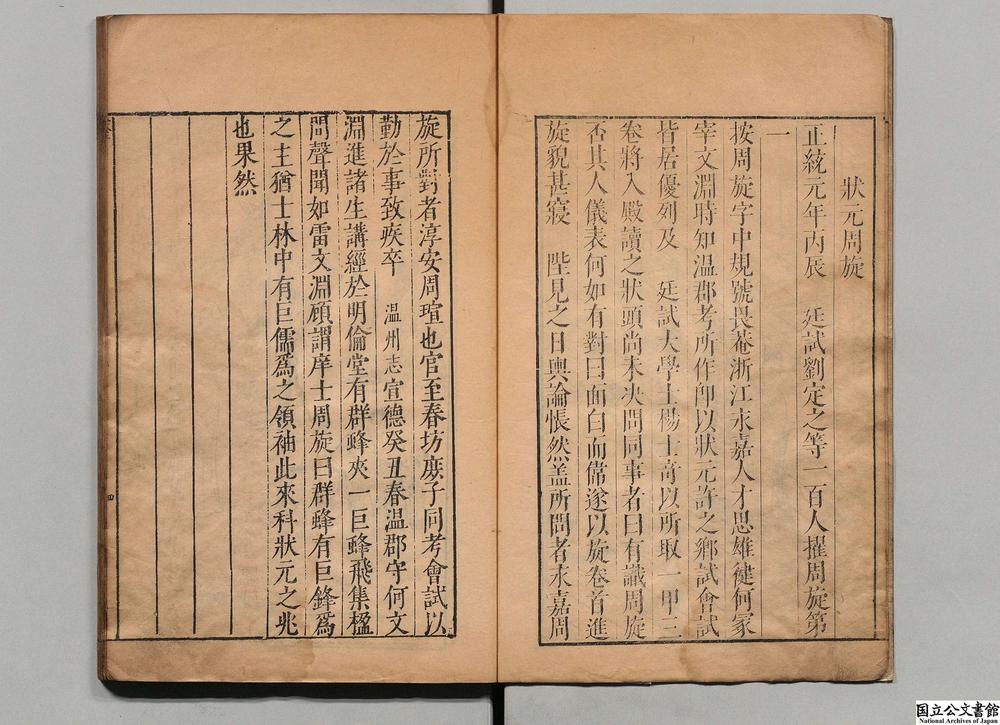 狀元周旋
正統元年丙辰　廷試劉定之等一百人擢周旋第
一
按周旋字中規號畏菴浙江永嘉人才思雄健何冢
宰文淵時知温郡考所作卽以狀元許之鄉試會試
皆居優列及　廷試大學士楊士竒以所取一甲三
卷將入殿讀之狀頭尚未决問同事者曰有識周旋
否其人儀表何如有對曰面白而偉遂以旋卷首進
旋貌甚寢　陛見之日輿論悵然盖所問者永嘉周
旋所對者淳安周瑄也官至春坊庻子同考會試以
勤於事致疾卒　温州志宣德癸丑春温郡守何文
淵進諸生講經於明倫堂有群蜂夾一巨蜂飛集楹
間聲聞如雷文淵顧謂庠士周旋曰群蜂有巨鋒爲
之主猶士林中有巨儒爲之領袖此來科狀元之兆
也果然
四
国立公文書館
National Archives of Japan